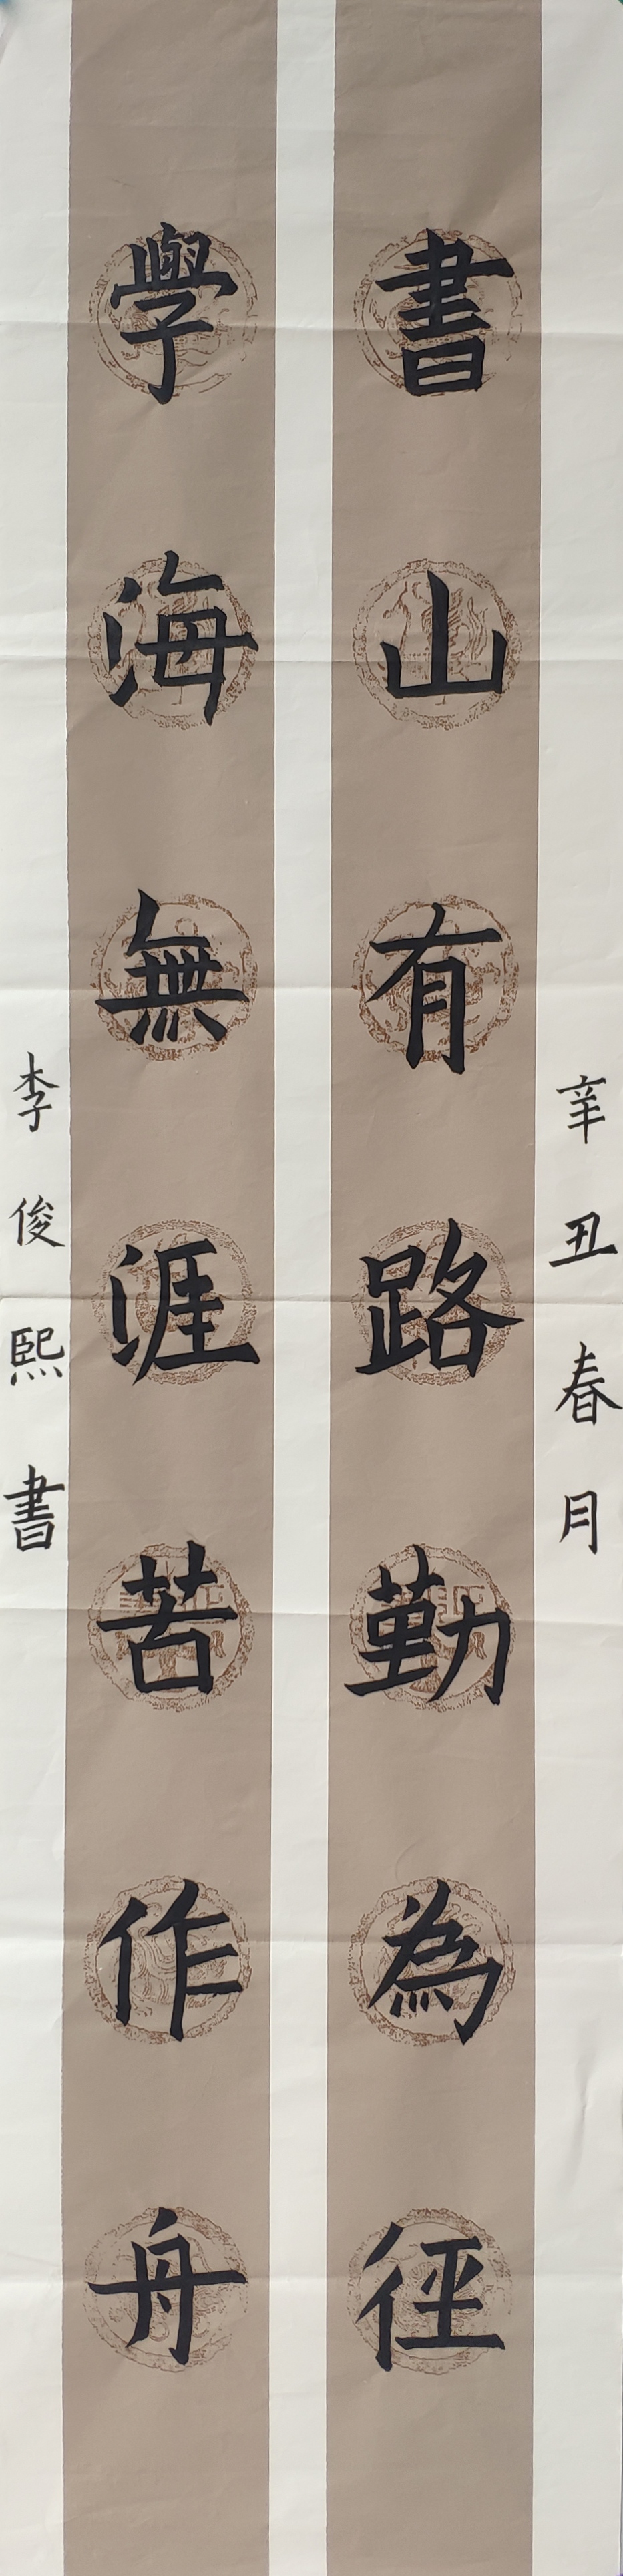 辛丑春月
書山有路勤為徑
學海無涯苦作舟
李俊熙書